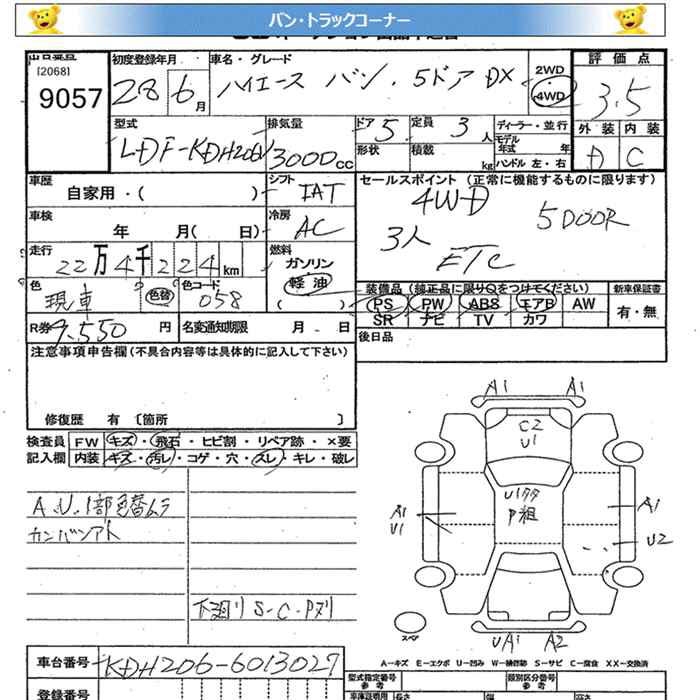 バン・トラックコーナー
出品番号
[2068]
9057
初度登録年月
28 6月
車名・グレード
ハイエース バン . 5ドア DX
2WD
4WD
評価点
3.5
外装 内装
D C
型式
LDF-KDH206V
排気量
3000cc
ドア 5
形状
定員 3人
積載 kg
ディーラー・並行
モデル年式 年
ハンドル 左・右
車歴
自家用・( )
シフト
IAT
セールスポイント (正常に機能するものに限ります)
4WD 5DOOR
3人
ETC
車検
年 月( 日)
冷房
AC
走行
22万4千224km
燃料
ガソリン
軽油
( )
色
現車
色替
色コード
058
装備品 (純正品に限り○をつけてください)
新車保証書
PS PW ABS エアB AW
有・無
SR ナビ TV カワ
R券 9,550 円
名変通知期限 月 日
後日品
注意事項申告欄(不具合内容等は具体的に記入して下さい)
修復歴 有 〔箇所 〕
検査員記入欄
FW キズ・飛石・ヒビ割・リペア跡・×要
内装 キズ・汚レ・コゲ・穴・スレ・キレ・破レ
A.U.1部色替ムラ
カンバンアト
下廻リ S-C-Pヌリ
A1 A1
C2
U1
U1タタ
P担
A1
U1
A1
U2
スペア
UA1 A2
A－キズ E－エクボ U－凹み W－補修跡 S－サビ C－腐食 XX－交換済
車台番号
KDH206-6013027
登録番号
型式指定番号
参考
類別区分番号
参考
車庫証明用
長さ
幅
高さ